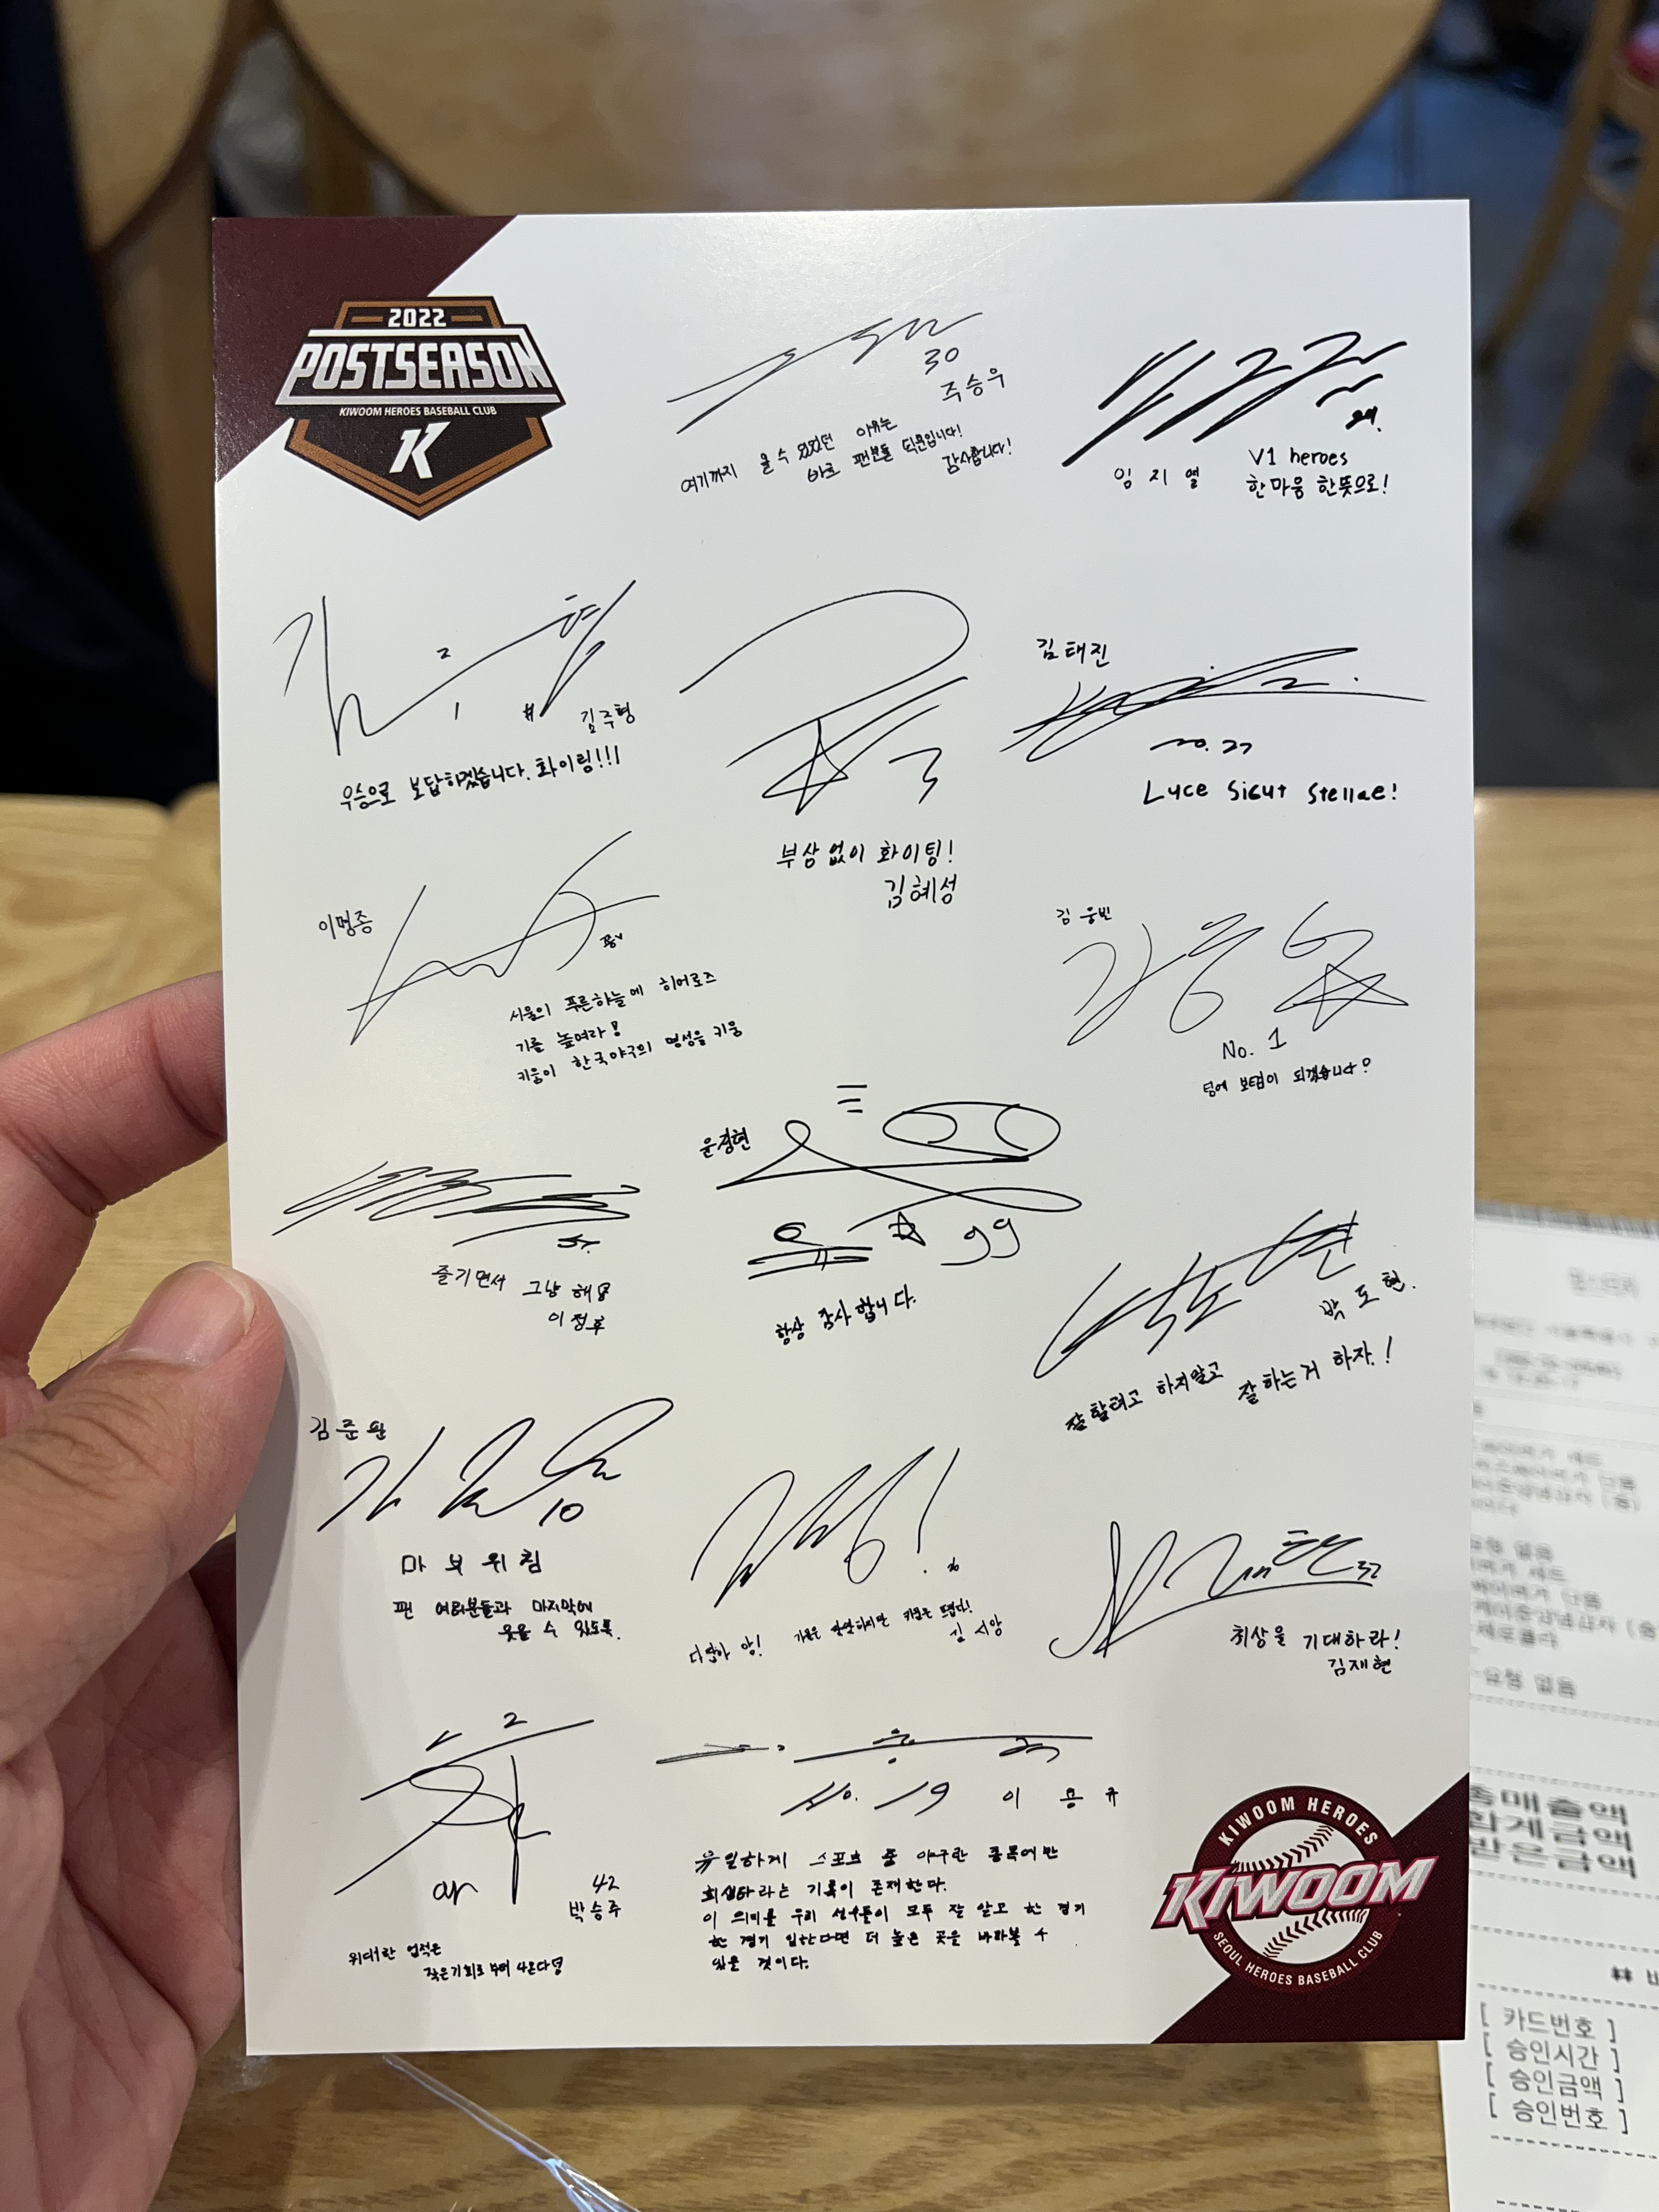 2022
POSTSEASON
KIWOOM HEROES BASEBALL CLUB
K
30
주승우
여기까지 올 수 있었던 이유는
바로 팬분들 덕분입니다!
감사합니다!
29.
임지열
V1 heroes
한마음 한뜻으로!
2
1 #
김주형
우승으로 보답하겠습니다. 화이팅!!!
3
부상없이 화이팅!
김혜성
김태진
no. 27
Luce Sicut Stellae!
이명종
서울의 푸른하늘에 히어로즈
기를 높여라!
키움이 한국야구의 명성을 키움
김웅빈
No. 1
팀에 보탬이 되겠습니다!
즐기면서 그냥 해!
이정후
윤정현
99
항상 감사합니다.
박도현.
잘할려고 하지말고 잘하는거 하자.!
김준완
10
마부위침
팬 여러분들과 마지막에
웃을 수 있도록.
가을은 쌀쌀하지만 키움은 뜨겁다!
김시앙
32
최상을 기대하라!
김재현
42
박승주
위대한 업적은
작은기회로 부터 나온다
No. 19 이용규
유일하게 스포츠 중 야구란 종목에만
희생타라는 기록이 존재한다.
이 의미를 우리 선수들이 모두 잘 알고 한 경기
한 경기 임한다면 더 높은 곳을 바라볼 수
있을 것이다.
KIWOOM HEROES
KIWOOM
SEOUL HEROES BASEBALL CLUB
총매출액
합계금액
받은금액
[ 카드번호 ]
[ 승인시간 ]
[ 승인금액 ]
[ 승인번호 ]